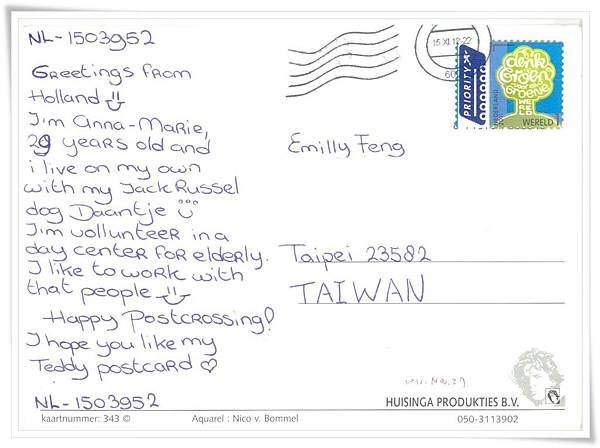 NL-1503952
Greetings from
Holland
I'm Anna-Marie,
29 years old and
i live on my own
with my Jack Russel
dog Daantje
I'm vollunteer in a
day center for elderly.
I like to work with
that people
Happy Postcrossing!
I hope you like my
Teddy postcard
NL-1503952
kaartnummer: 343 ©
Aquarel : Nico v. Bommel
15 XI 12-22
PRIORITY
NEDERLAND
denk
Groen
Groene
WERELD 1
Emilly Feng
Taipei 23582
TAIWAN
Nov. 29
HUISINGA PRODUKTIES B.V.
050-3113902